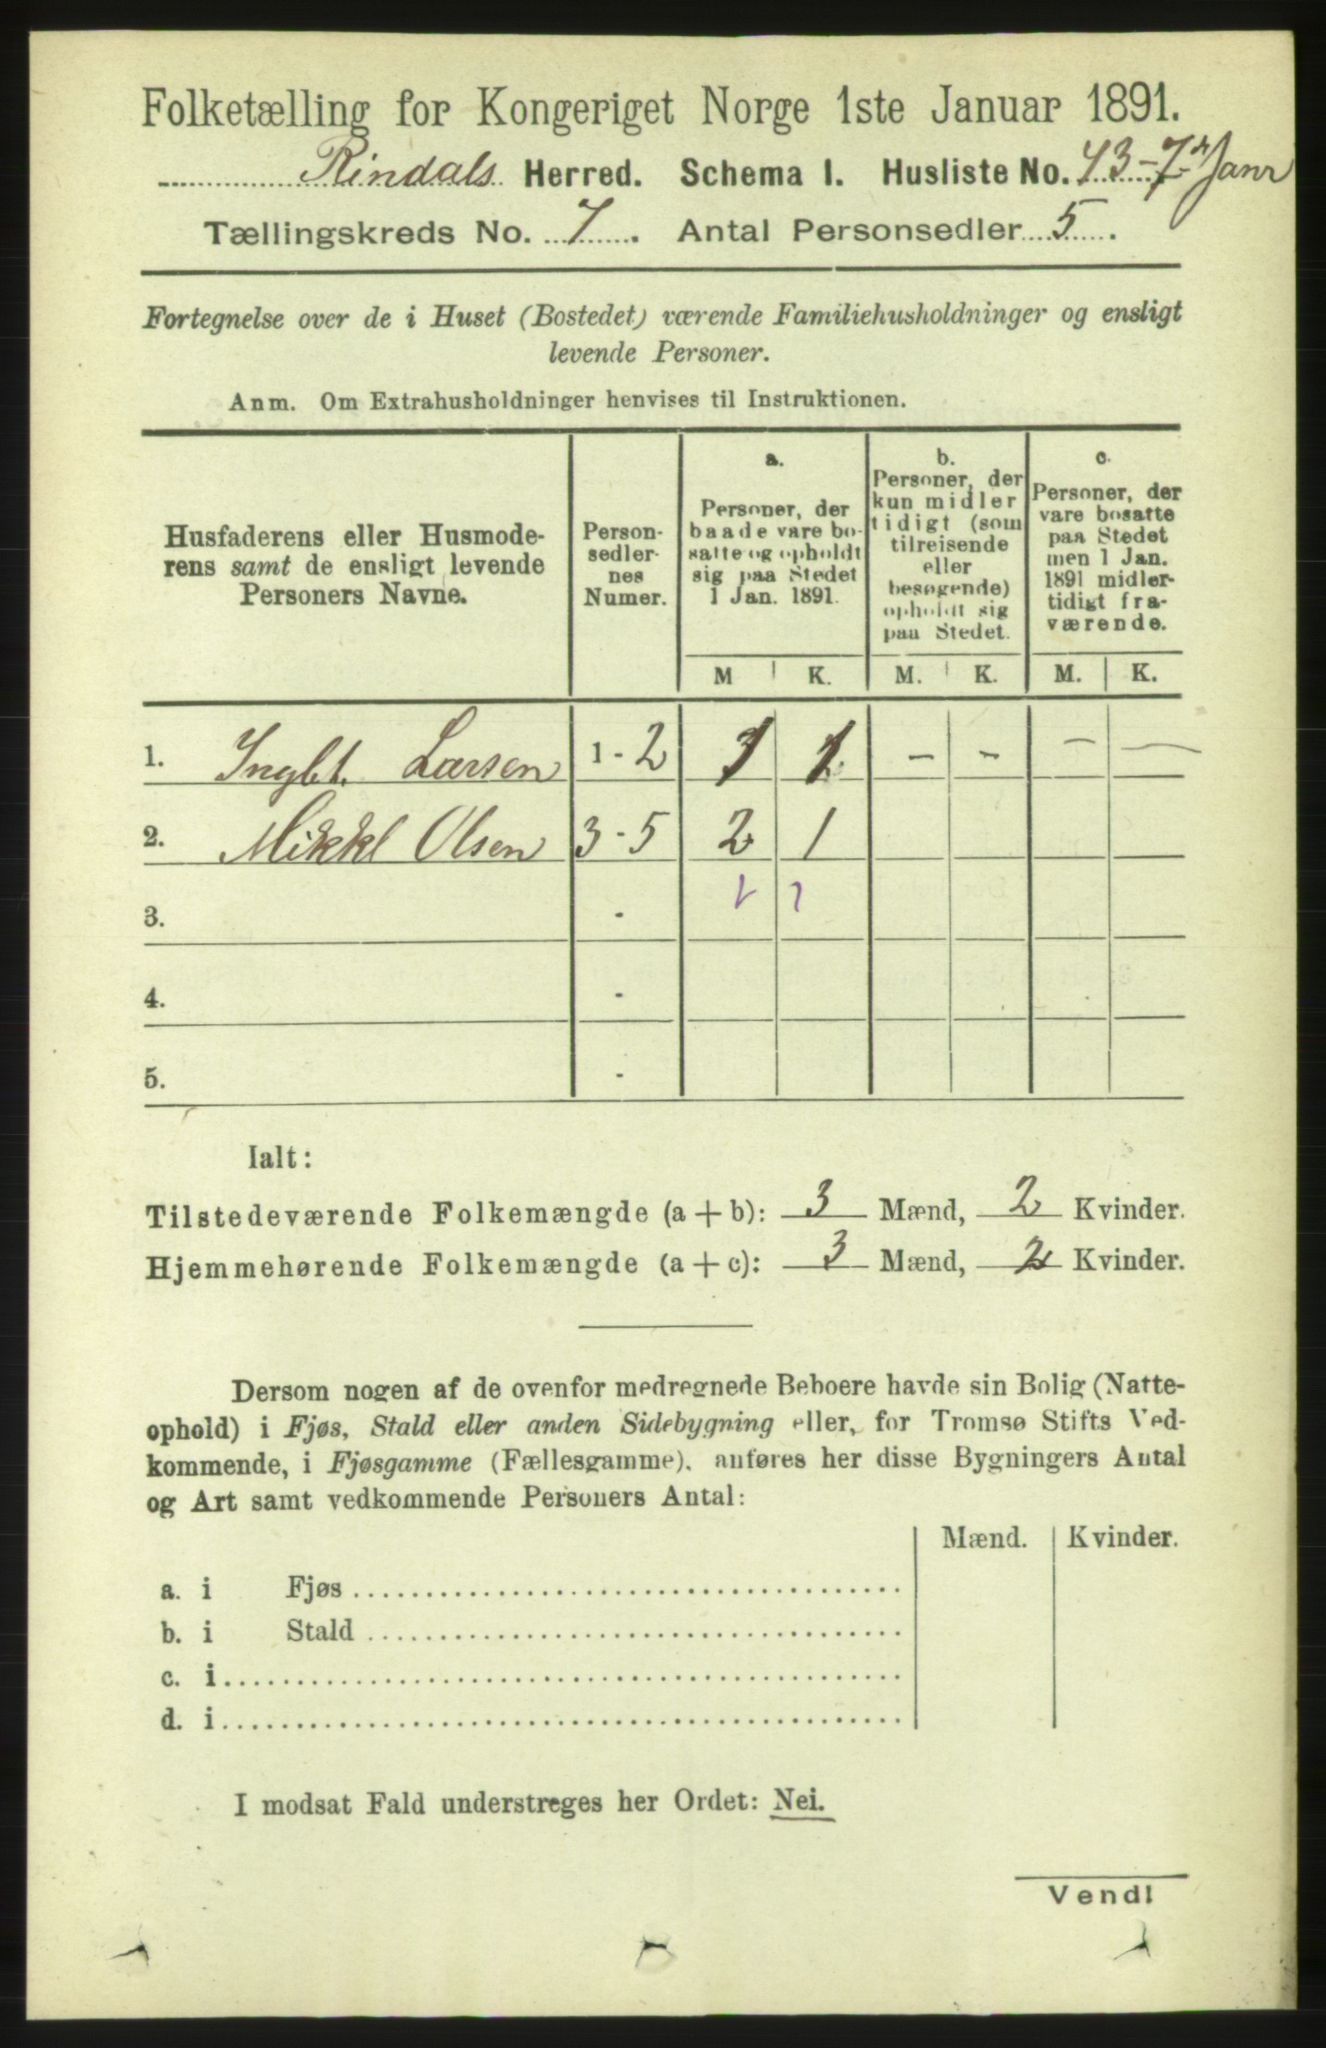 Folketælling for Kongeriget Norge 1ste Januar 1891.
Rindals Herred. Schema I. Husliste No. 43 - 7 Janr
Tællingskreds No. 7. Antal Personsedler 5.
Fortegnelse over de i Huset (Bostedet) værende Familiehusholdninger og ensligt
levende Personer.
Anm. Om Extrahusholdninger henvises til Instruktionen.
Husfaderens eller Husmode-
rens samt de ensligt levende
Personers Navne.
Person-
sedler-
nes
Numer.
a.
Personer, der
baade vare bo-
satte og opholdt
sig paa Stedet
1 Jan. 1891.
b.
Personer, der
kun midler
tidigt (som
tilreisende
eller
besøgende)
opholdt sig
paa Stedet.
c.
Personer, der
vare bosatte
paa Stedet
men 1 Jan.
1891 midler-
tidigt fra-
værende.
M K. M. K. M. K.
1. Ingbt. Larsen 1 - 2 1 1 - - - -
2. Mikkl Olsen 3 - 5 2 1
3. -
4. -
5. -
Ialt:
Tilstedeværende Folkemængde (a + b): 3 Mænd, 2 Kvinder.
Hjemmehørende Folkemængde (a + c): 3 Mænd, 2 Kvinder.
Dersom nogen af de ovenfor medregnede Beboere havde sin Bolig (Natte-
ophold) i Fjøs, Stald eller anden Sidebygning eller, for Tromsø Stifts Ved-
kommende, i Fjøsgamme (Fællesgamme), anføres her disse Bygningers Antal
og Art samt vedkommende Personers Antal:
Mænd. Kvinder.
a. i Fjøs
b. i Stald
c. i
d. i
I modsat Fald understreges her Ordet: Nei.
Vend!